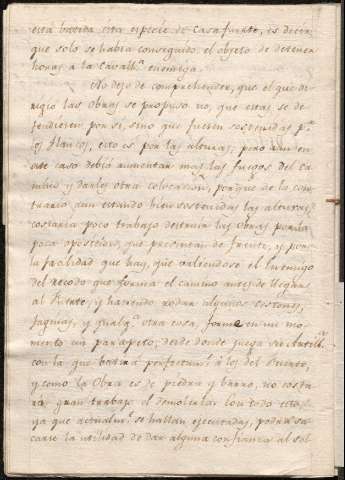 está batida esta especie de Casafuerte, es decir,
que solo se habia conseguido el objeto de detener
horas a la Cavall.ª enemiga.
No dejo de comprehender, que el que di-
rigió las Obras se propuso no, que estas se de-
fendiesen por si, sino que fuesen sostenidas p.r
los flancos, esto es por las alturas; pero aun en
este caso debió aumentar mas los fuegos del Ca-
mino y darles otra colocacion, porque de lo con-
trario aun estando bien sostenidas las alturas,
costaria poco trabajo destruir las Obras por la
poca oposicion, que presentan de frente, y por
la facilidad que hay, que valiendose el Enemigo
del recodo que forma el camino antes de llegar
al Fuerte, y haciendo rodar algunos cestones,
faginas, y qualq.ª otra cosa, forme en un mo-
mento un parapeto, desde donde juega su Artill.ª
con la que batirá perfectam.te á los del Fuerte,
y como la Obra es de piedra y barro, no costa-
rá gran trabajo el demolerla. Con todo esto,
ya que actualm.te se hallan ejecutadas, podrá sa-
carse la utilidad de dar alguna confianza al sol